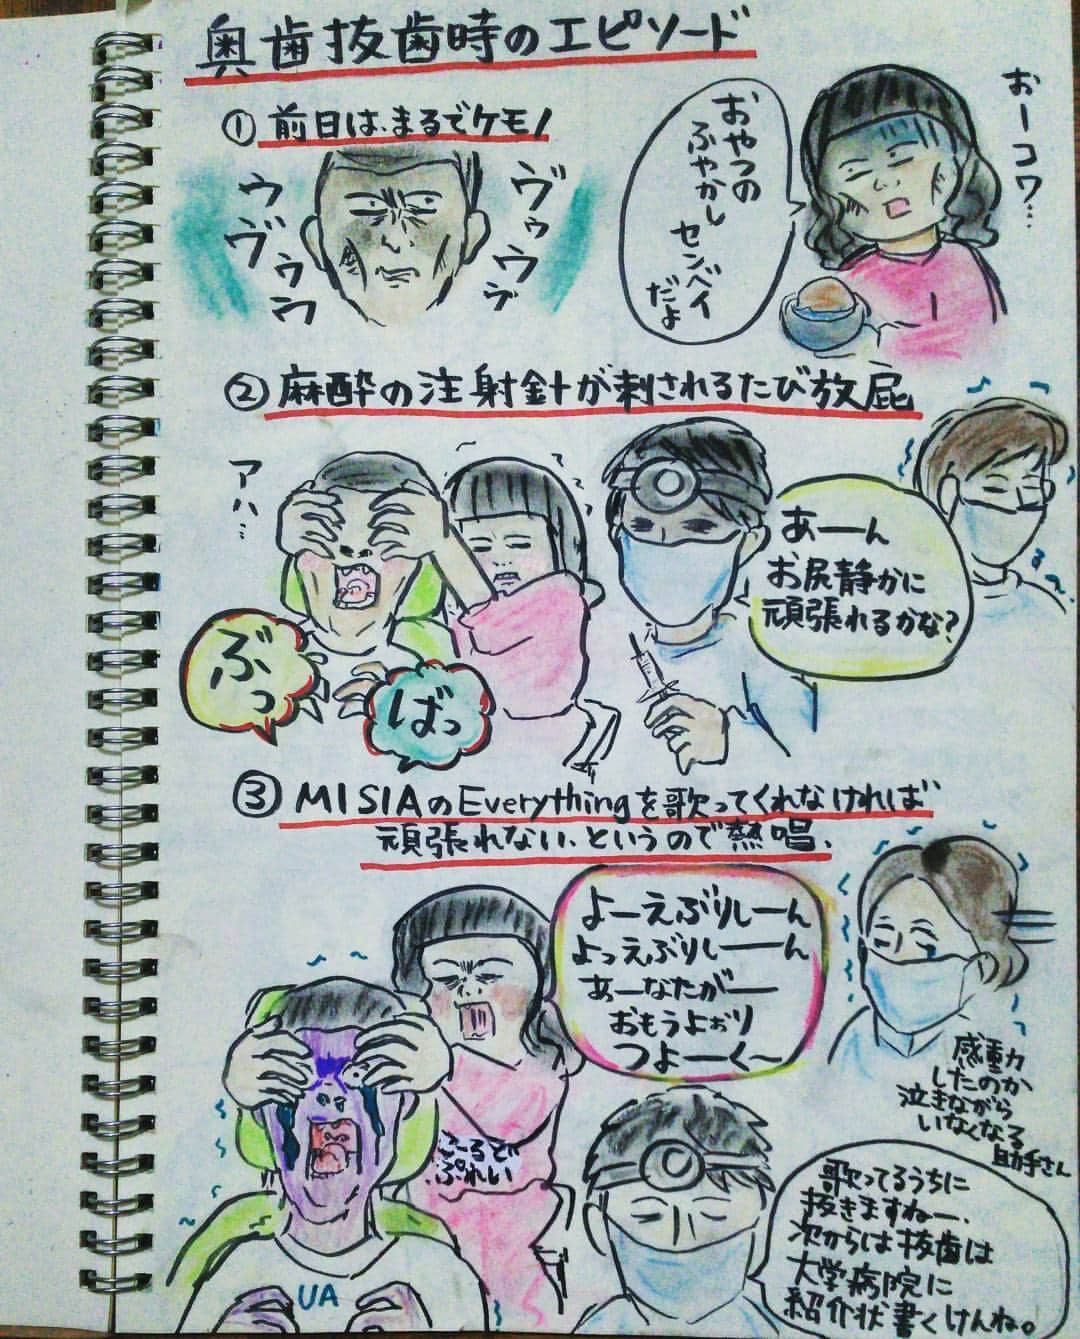 奥歯抜歯時のエピソード
① 前日は、まるでケモノ
ウヴゥウ
ヴゥウヴ
おやつの
ふやかし
センベイ
だよ
おーコワ…
② 麻酔の注射針が刺されるたび放屁
アハ…
ぶっ
ばっ
あーーん
お尻静かに
頑張れるかな?
③ MISIAのEverythingを歌ってくれなければ
頑張れない、というので熱唱、
よーえぶりしーん
よっえぶりしーーん
あーなたがー
おもうよぉり
つよーーく〜
感動
したのか
泣きながら
いなくなる
助手さん
こーるど
ぷれい
UA
歌ってるうちに
抜きますねー、
次からは抜歯は
大学病院に
紹介状書くけんね。